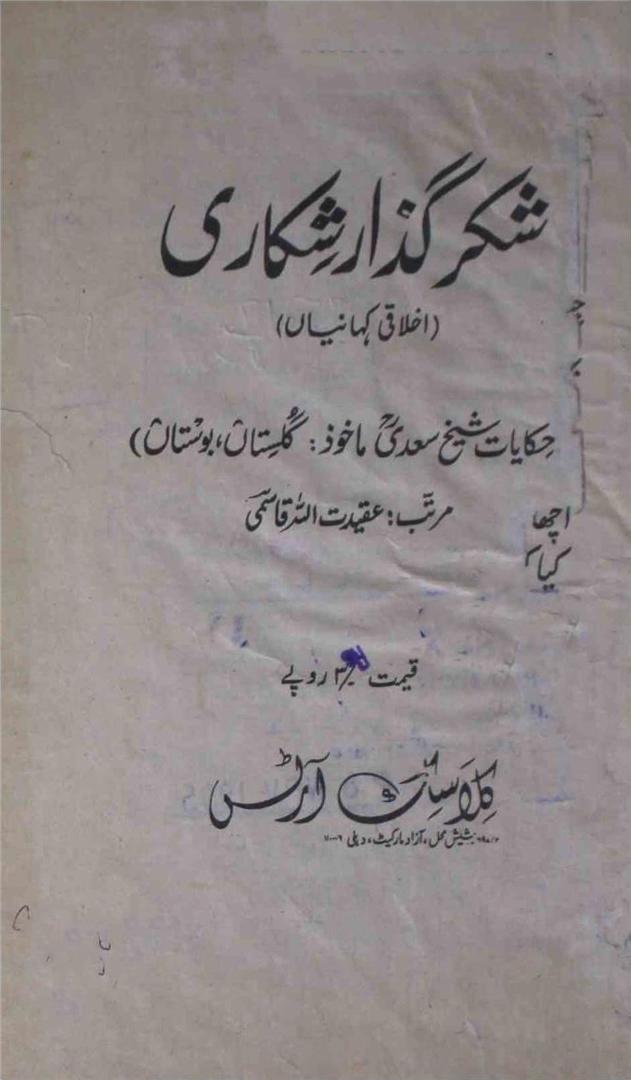 شکر گذار شِکاری
(اخلاقی کہانیاں)
حِکایات شیخ سعدیؒ ماخوذ: گُلِستاں، بوستاں)
مرتّب: عقیدت اللہ قاسمی
اچھا
کیا
قیمت ۳ روپے
کِلاسک آرٹس
شیش محل، آزاد مارکیٹ، دہلی ۱۱۰۰۰۶